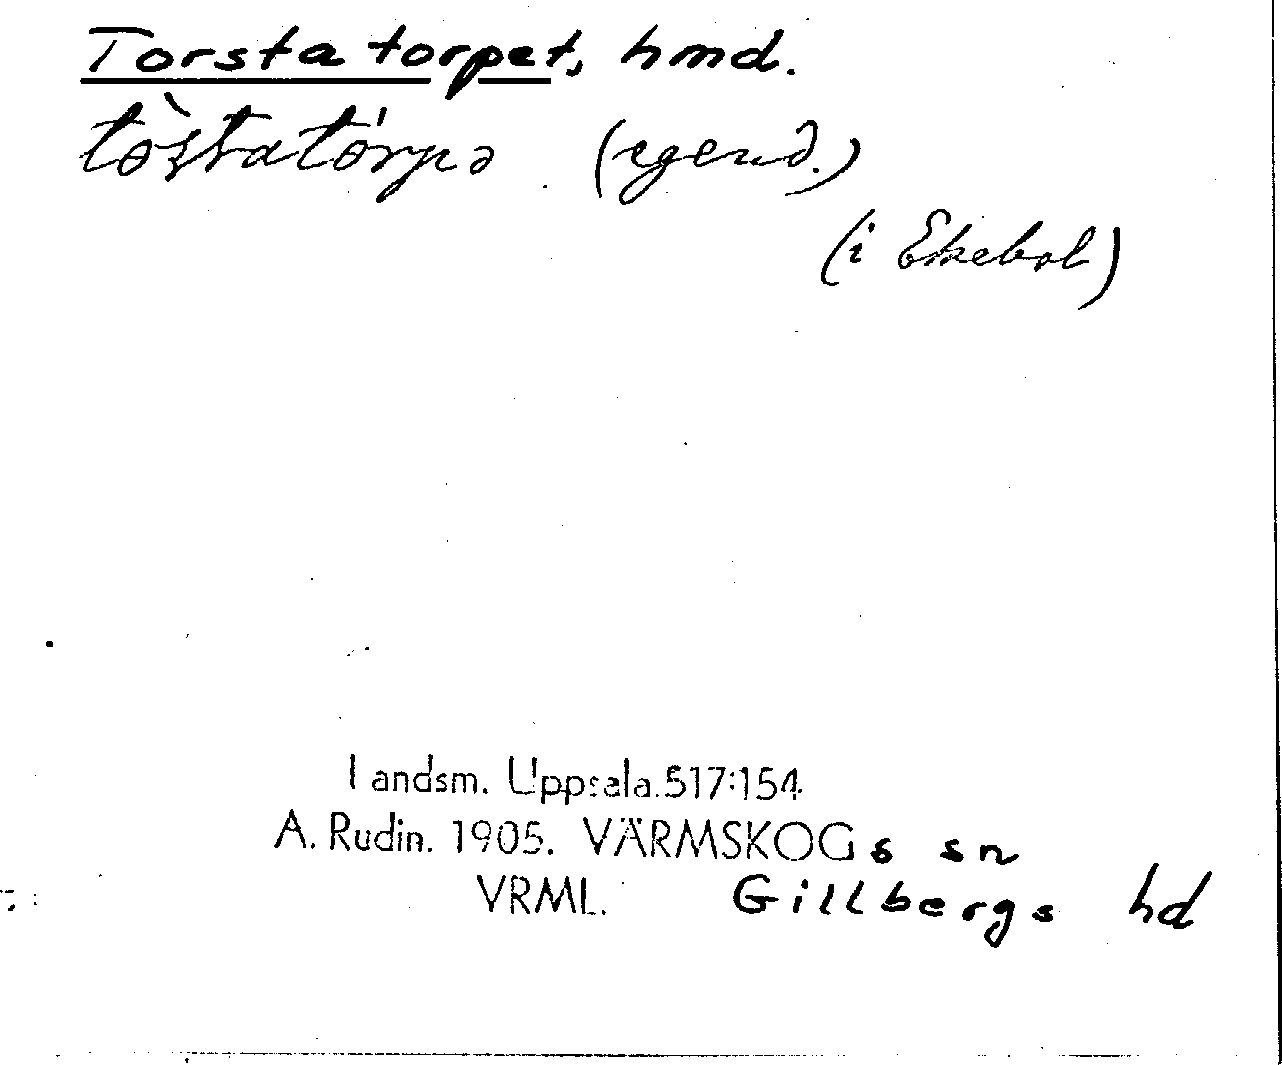 Torstatorpet, hmd.
tòstatórpə (egend.)
(i Ekebol)
Landsm. Uppsala.517:154
A. Rudin. 1905. VÄRMSKOGs sn
VRML. Gillbergs hd